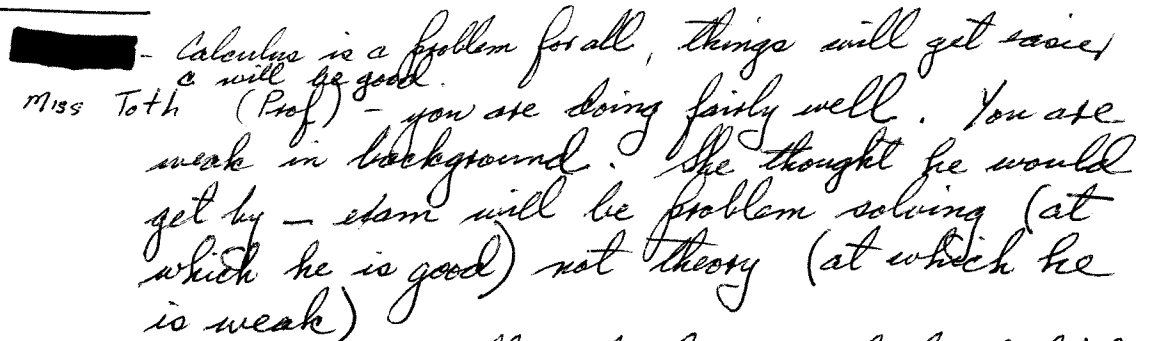 - Calculus is a problem for all, things will get easier,
c will be good.
Miss Toth (Prof) - you are doing fairly well. You are
weak in background. She thought he would
get by — exam will be problem solving (at
which he is good) not theory (at which he
is weak)